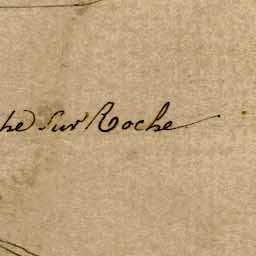 he sur Roche